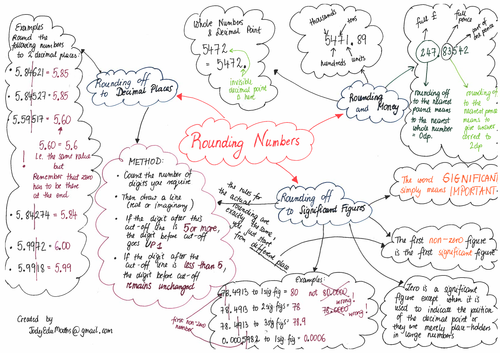 Examples
Round the
following numbers
to 2 decimal places.
• 5.84621 = 5.85
• 5.84527 = 5.85
5.59517 = 5.60
5.60 = 5.6
i.e. the same value
but
Remember that zero
has to be there
at the end.
• 5.84274 = 5.84
5.9972 = 6.00
5.99118 = 5.99
Created by
JodyEduMaths@gmail.com
Rounding off
to Decimal Places
METHOD:
• Count the number of
digits you require
• Then draw a line
(real or imaginary)
• If the digit after this
cut-off line is 5 or more,
the digit before cut-off
goes UP 1
• If the digit after the
cut-off line is less than 5,
the digit before cut-off
remains unchanged
Whole Numbers
& Decimal Point
5472
= 5472.
invisible
decimal point
is here
Rounding Numbers
thousands
tens
5471.89
hundreds
units
Rounding
and Money
full £
full
pence
part of
247.83542
rounding off
to the nearest
pound means
to the nearest
whole number
= 0dp.
rounding off
to the
nearest pence
means to
give answer
to 2dp
Rounding off
to Significant Figures
the rules for
the actual
rounding are
exactly the same,
you just start
from different place
The word SIGNIFICANT
simply means IMPORTANT
The first non-zero figure
is the first significant figure
Zero is a significant
figure except when it is
used to indicate the position
of the decimal point or
they are merely place-holders
in large numbers
Examples:
78.4913 to 1 sig fig = 80 not 80.0000
wrong!
78.4913 to 2 sig figs = 78
78.0000
wrong!
78.4913 to 3 sig figs = 78.5
0.0005982 to 1 sig fig = 0.0006
first non-zero
number